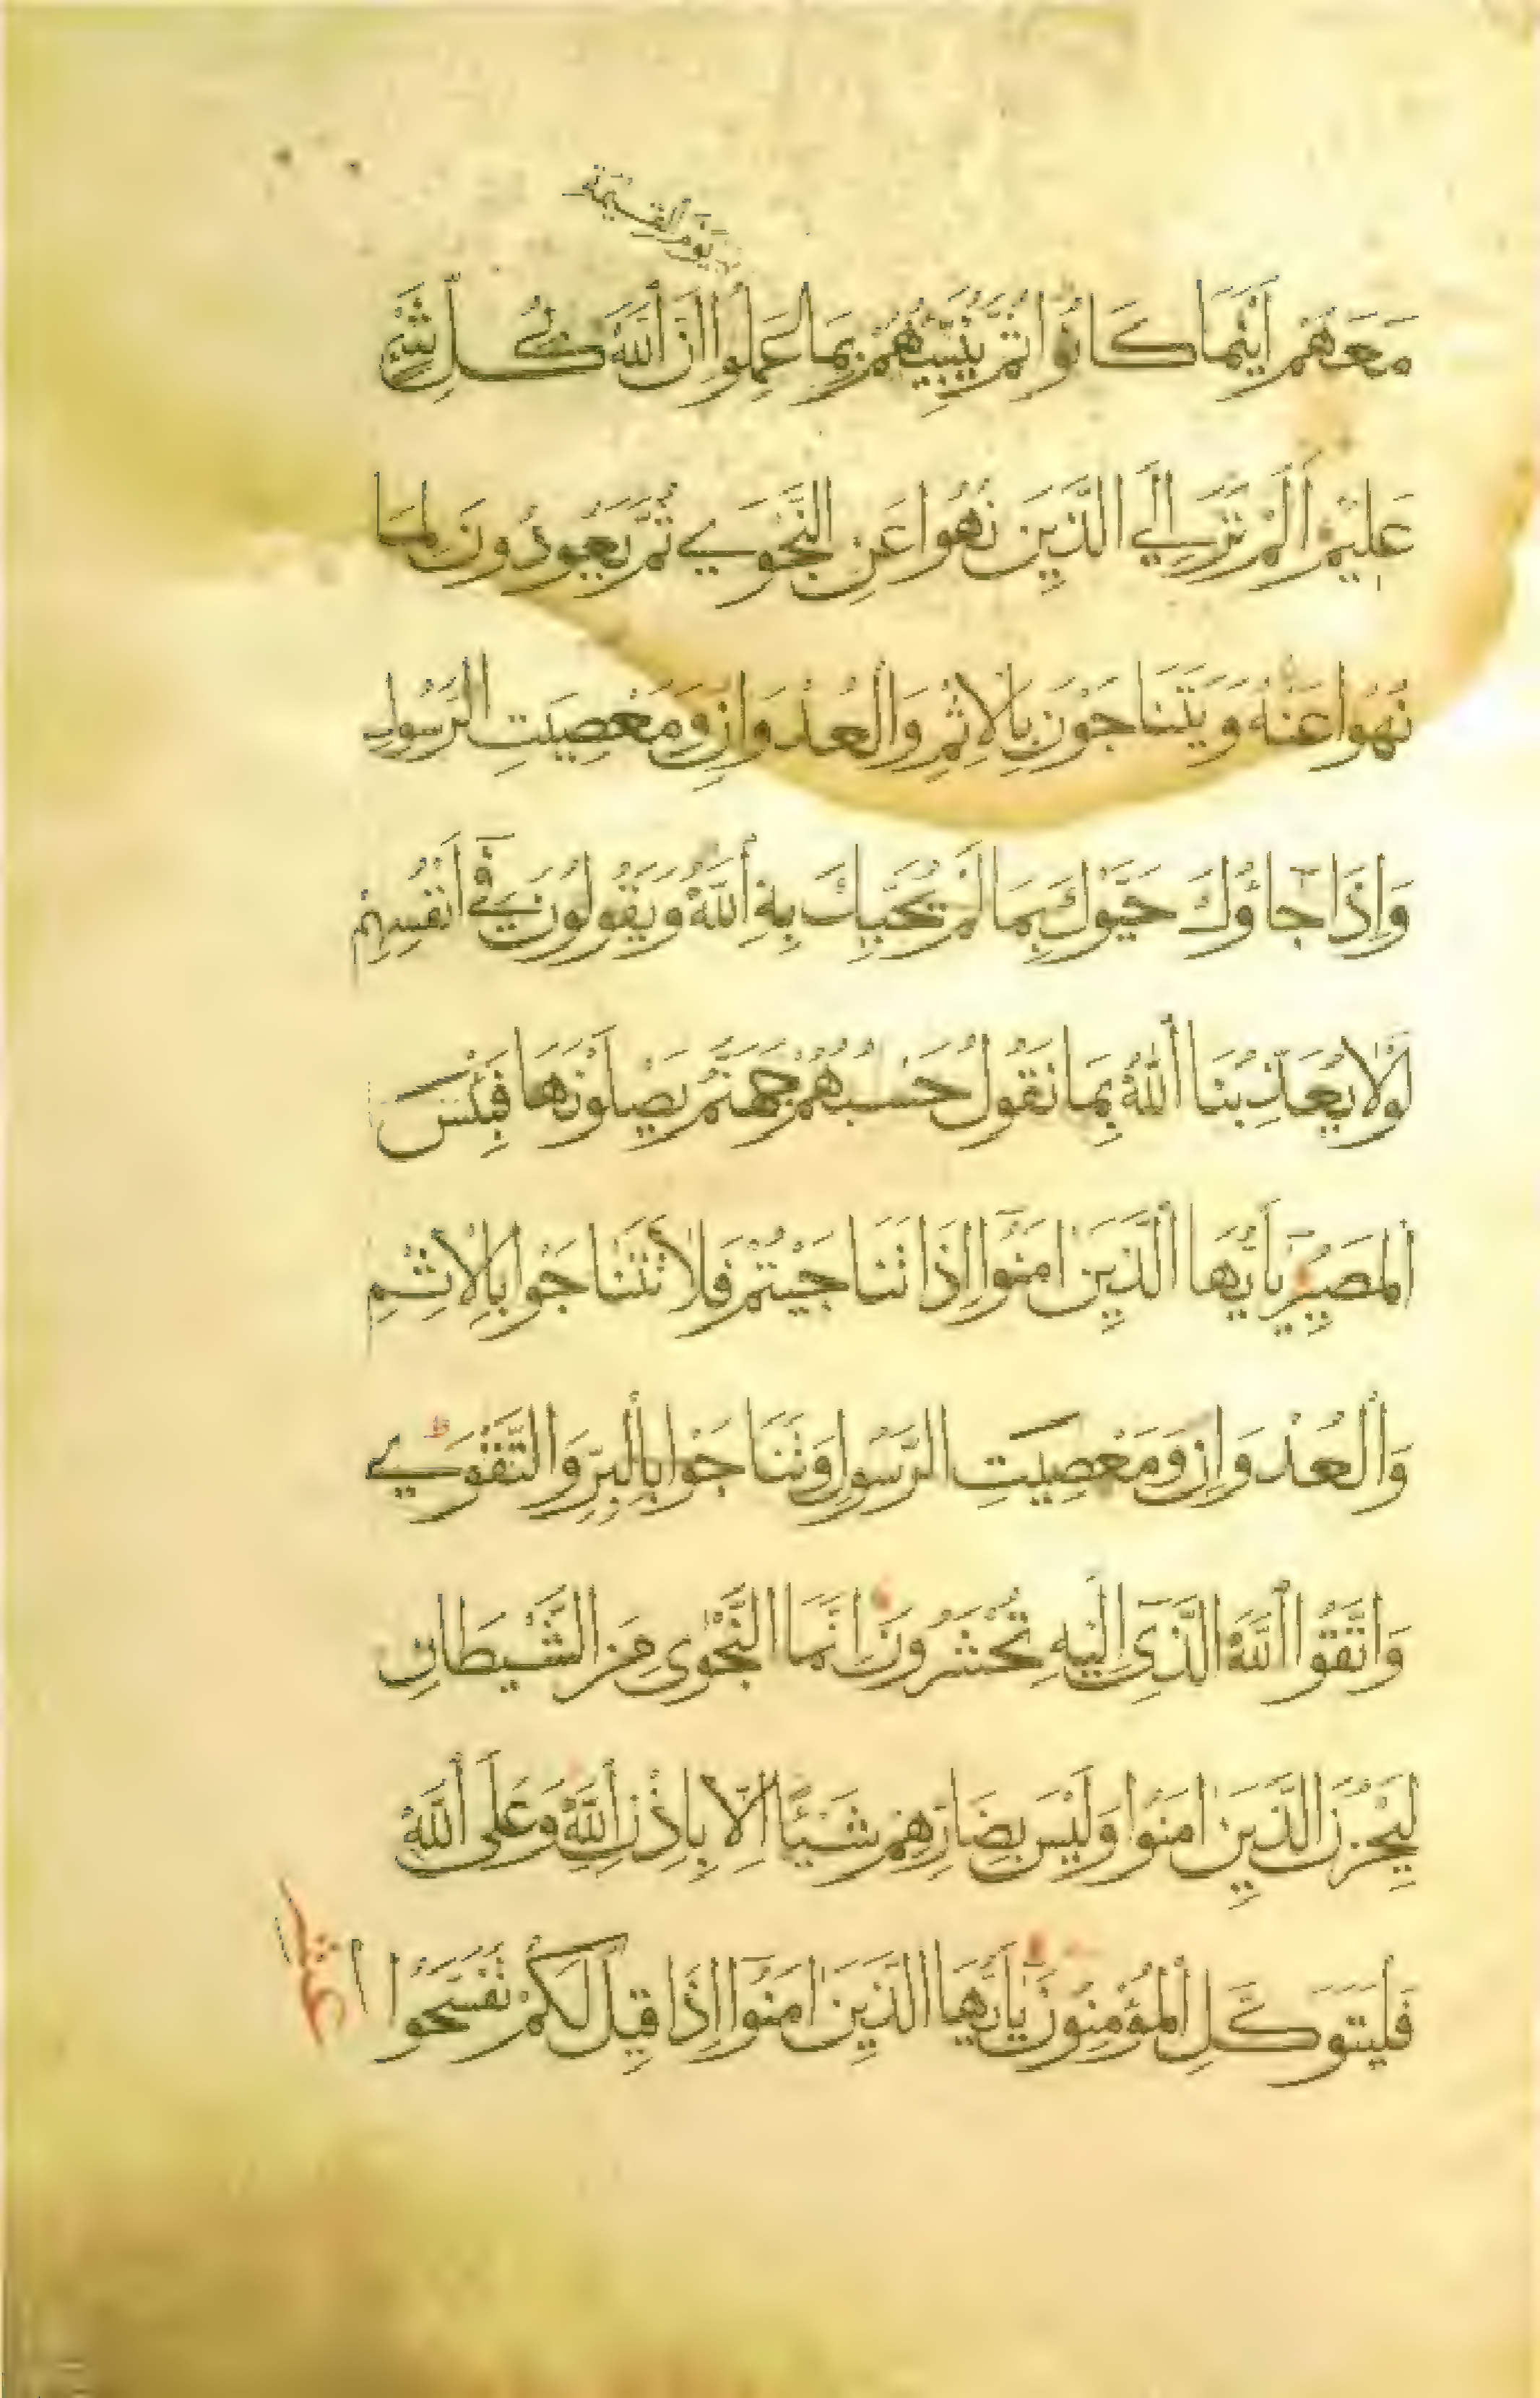 يَوْمَ الْقِيٰمَةِ
مَعَهُمْ اَيْنَمَا كَانُوا ثُمَّ يُنَبِّئُهُمْ بِمَا عَمِلُوا اِنَّ اللّٰهَ كُلِّ شَيْءٍ
عَلِيْمٌ اَلَمْ تَرَ اِلَى الَّذِيْنَ نُهُوا عَنِ النَّجْوٰى ثُمَّ يَعُودُونَ لِمَا
نُهُوا عَنْهُ وَيَتَنَاجَوْنَ بِالْاِثْمِ وَالْعُدْوَانِ وَمَعْصِيَتِ الرَّسُولِ
وَاِذَا جَاؤُكَ حَيَّوْكَ بِمَا لَمْ يُحَيِّكَ بِهِ اللّٰهُ وَيَقُولُونَ فِي اَنْفُسِهِمْ
لَوْلَا يُعَذِّبُنَا اللّٰهُ بِمَا نَقُولُ حَسْبُهُمْ جَهَنَّمُ يَصْلَوْنَهَا فَبِئْسَ
الْمَصِيْرُ يَاَيُّهَا الَّذِيْنَ اٰمَنُوا اِذَا تَنَاجَيْتُمْ فَلَا تَتَنَاجَوْا بِالْاِثْمِ
وَالْعُدْوَانِ وَمَعْصِيَتِ الرَّسُولِ وَتَنَاجَوْا بِالْبِرِّ وَالتَّقْوٰى ط
وَاتَّقُوا اللّٰهَ الَّذِي اِلَيْهِ تُحْشَرُونَ اِنَّمَا النَّجْوٰى مِنَ الشَّيْطَانِ
لِيَحْزُنَ الَّذِيْنَ اٰمَنُوا وَلَيْسَ بِضَارِّهِمْ شَيْئًا اِلَّا بِاِذْنِ اللّٰهِ وَعَلَى اللّٰهِ
فَلْيَتَوَكَّلِ الْمُؤْمِنُونَ يَاَيُّهَا الَّذِيْنَ اٰمَنُوا اِذَا قِيْلَ لَكُمْ تَفَسَّحُوا